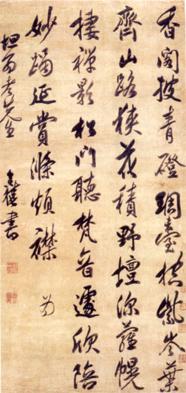 香閣披青磴琱臺控紫岑葉
齊山路狹花積野壇深蘿幌
棲禪影松門聽梵音遽欣陪
妙躅延賞滌煩襟 為
坦而老先生 書